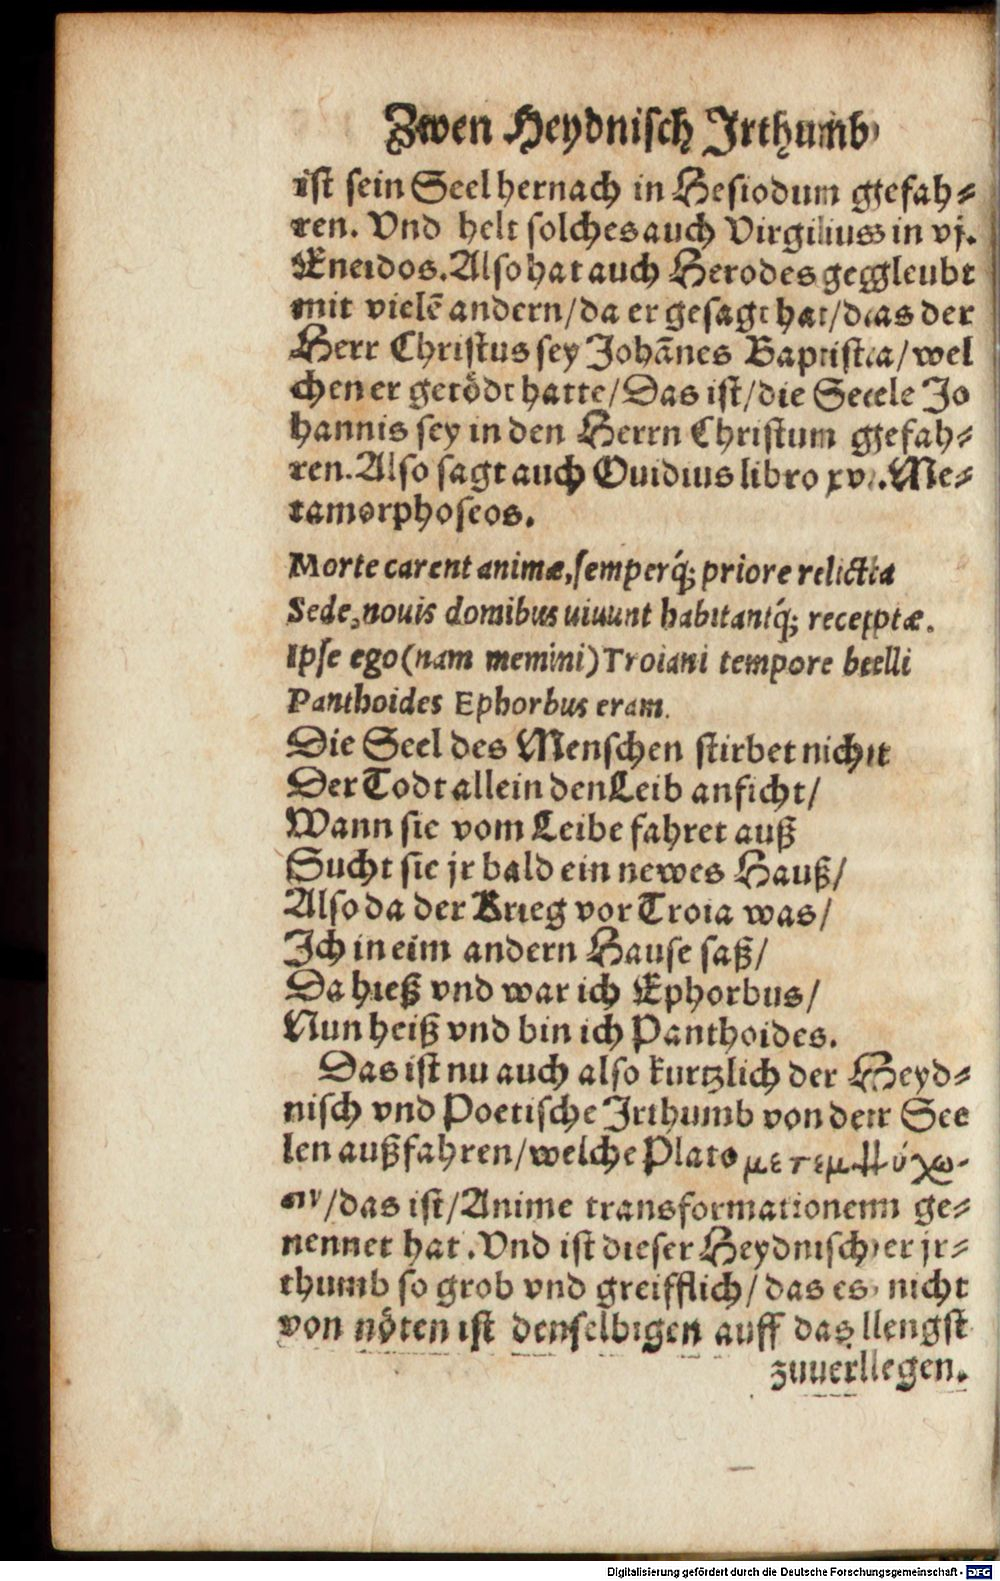 Zwen Heydnisch Jrthumb
ist sein Seel hernach in Hesiodum gefah⸗
ren. Vnd helt solches auch Virgilius in vj.
Eneidos. Also hat auch Herodes gegleubt
mit vielẽ andern/da er gesagt hat/das der
Herr Christus sey Johãnes Baptista/wel
chen er getödt hatte/Das ist/die Seele Jo
hannis sey in den Herrn Christum gefah⸗
ren. Also sagt auch Ouidius libro xv. Me⸗
tamorphoseos.
Morte carent animæ, semperq́; priore relicta
Sede, nouis domibus uiuunt habitantq́; receptæ.
Ipse ego (nam memini) Troiani tempore belli
Panthoides Ephorbus eram.
Die Seel des Menschen stirbet nicht
Der Todt allein den Leib anficht/
Wann sie vom Leibe fahret auß
Sucht sie jr bald ein newes Hauß/
Also da der Krieg vor Troia was/
Jch in eim andern Hause saß/
Da hieß vnd war ich Ephorbus/
Nun heiß vnd bin ich Panthoides.
Das ist nu auch also kurtzlich der Heyd⸗
nisch vnd Poetische Jrthumb von der See
len außfahren/welche Plato μετεμψύχω-
σιν/das ist/Anime transformationem ge⸗
nennet hat. Vnd ist dieser Heydnischer jr⸗
thumb so grob vnd greifflich/das es nicht
von nöten ist denselbigen auff das lengst
zuuerlegen.
Digitalisierung gefördert durch die Deutsche Forschungsgemeinschaft - DFG